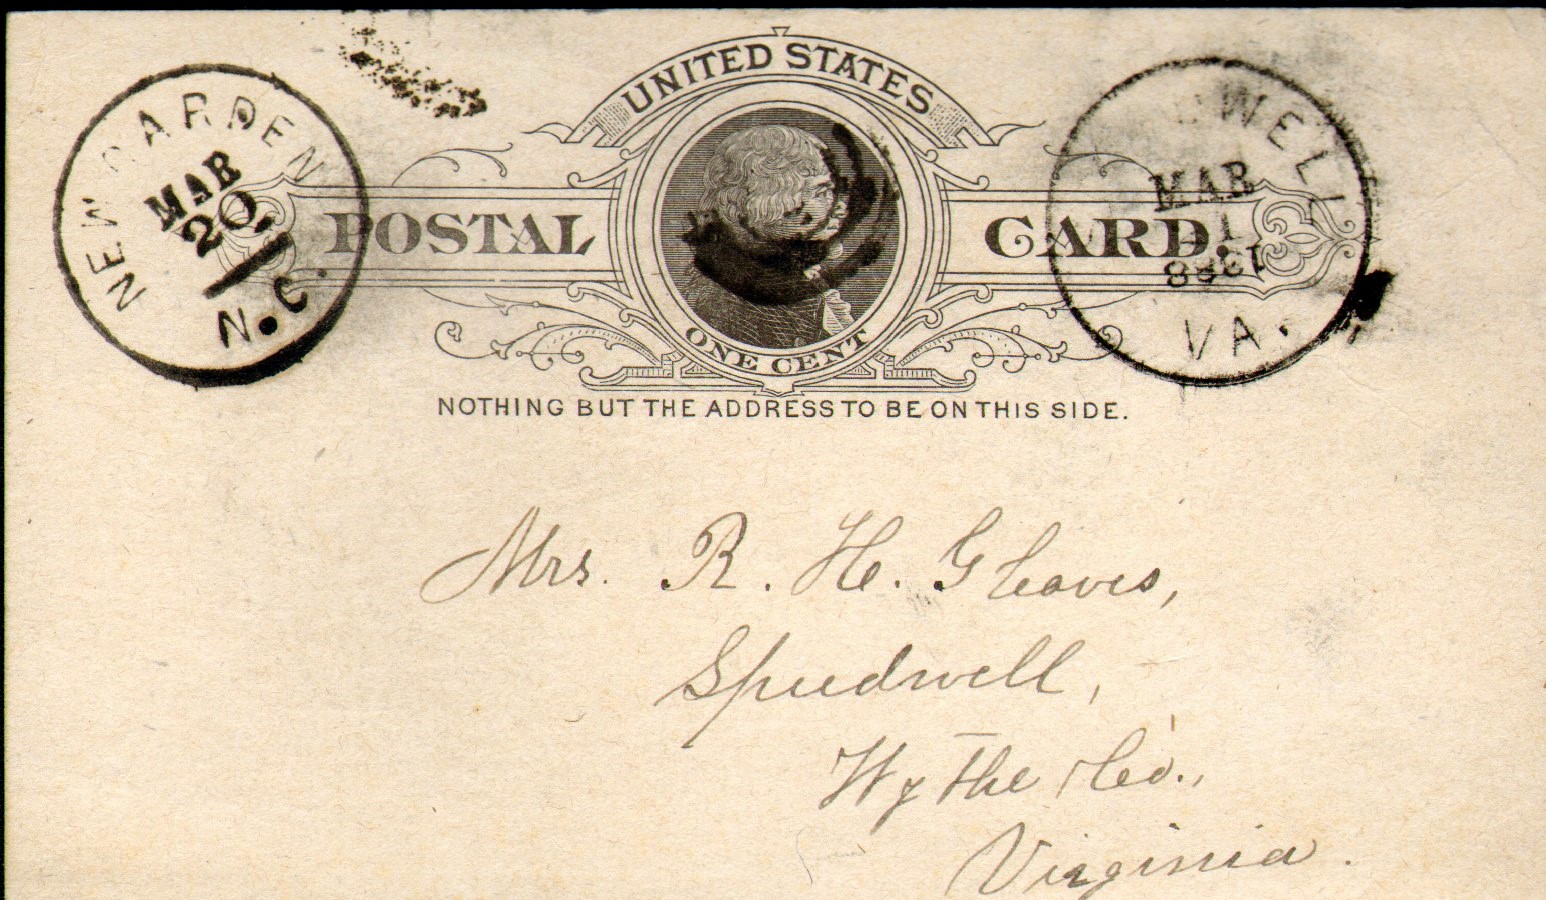 UNITED STATES
POSTAL CARD.
ONE CENT
NOTHING BUT THE ADDRESS TO BE ON THIS SIDE.
NEW GARDEN
MAR
20
N.C.
MAR
1
VA.
Mrs. R. H. Gleaves,
Speedwell,
Wythe Co.,
Virginia.